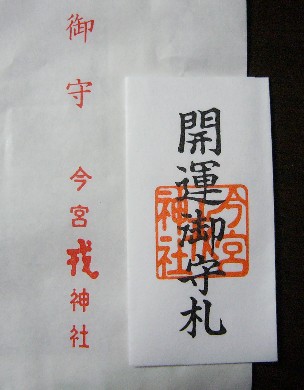 御守 今宮戎神社
開運御守札
今宮神社